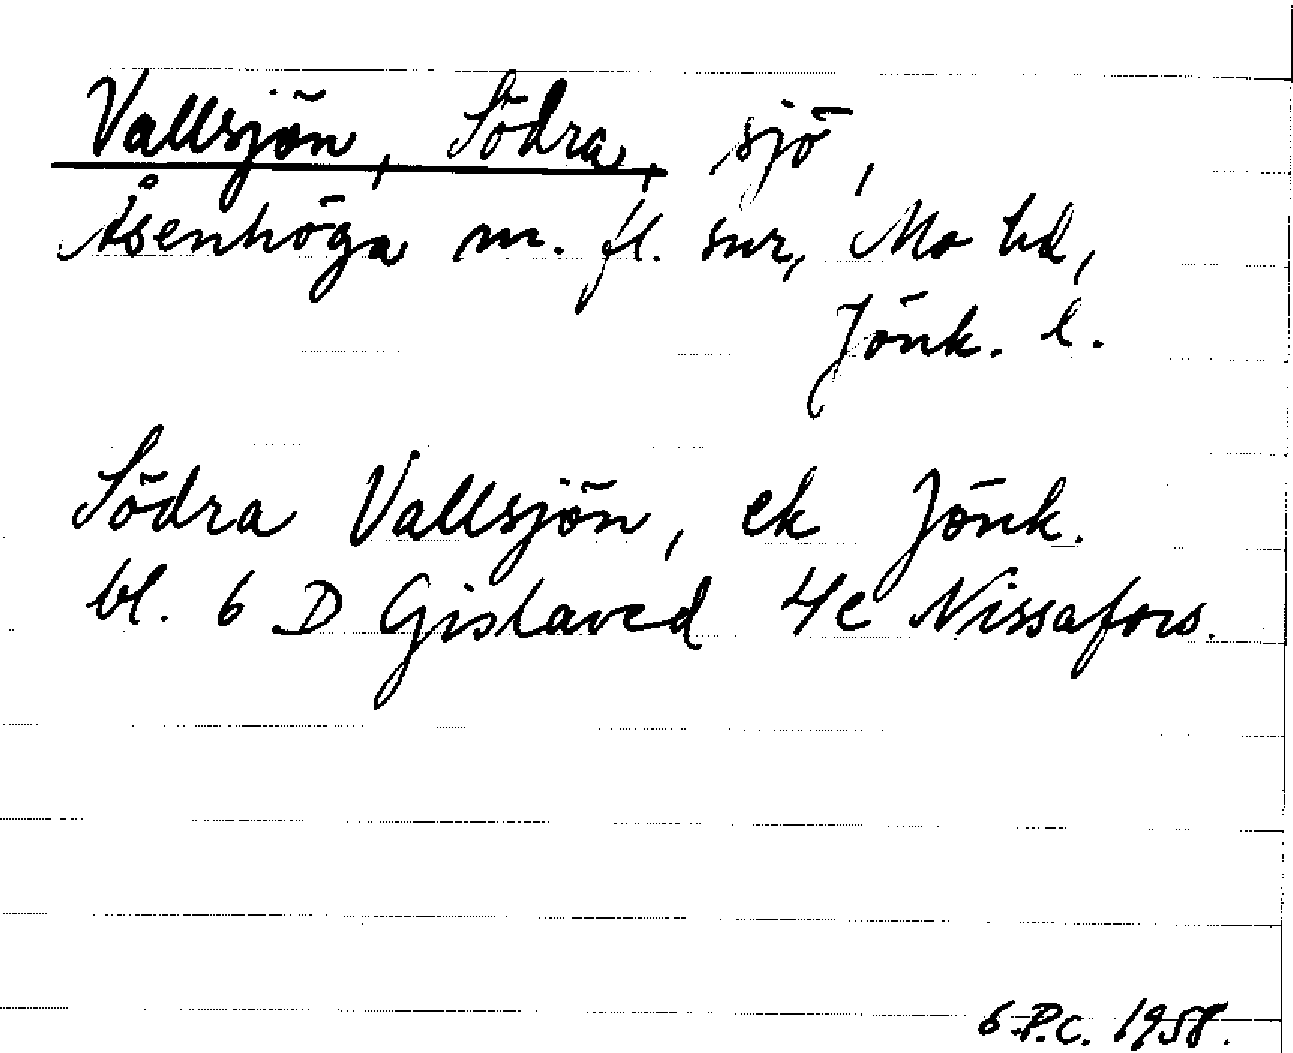 Vallsjön, Södra, sjö,
Åsenhöga m. fl. snr, Mo hd,
Jönk. l.
Södra Vallsjön, ek Jönk.
bl. 6 D Gislaved 4e Nissafors.
G.P.C. 1958.